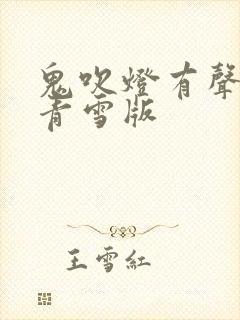 鬼吹燈有聲
青雪版
王雪紅